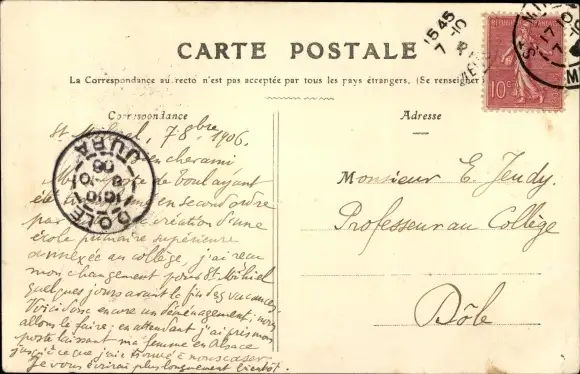 CARTE POSTALE
La Correspondance au recto n'est pas acceptée par tous les pays étrangers. (Se renseigner
Correspondance
Adresse
RÉPUBLIQUE FRANÇAISE
10c
15 45
7 - 10
17
7 - 10
DOLE
JURA
8 - 10
06
St Mihiel, 7 8bre 1906.
cher ami
de Toul ayant
en second ordre
par création d'une
école primaire supérieure
annexée au collège, j'ai reçu
mon changement pour St Mihiel
quelques jours avant la fin des vacances.
Voici donc encore un déménagement; nous
allons le faire; en attendant j'ai pris mon
poste laissant ma femme en Alsace
jusqu'à ce que j'aie trouvé à nous caser
Je vous écrirai plus longuement bientôt.
Monsieur E. Jeudy.
Professeur au Collège
Dôle